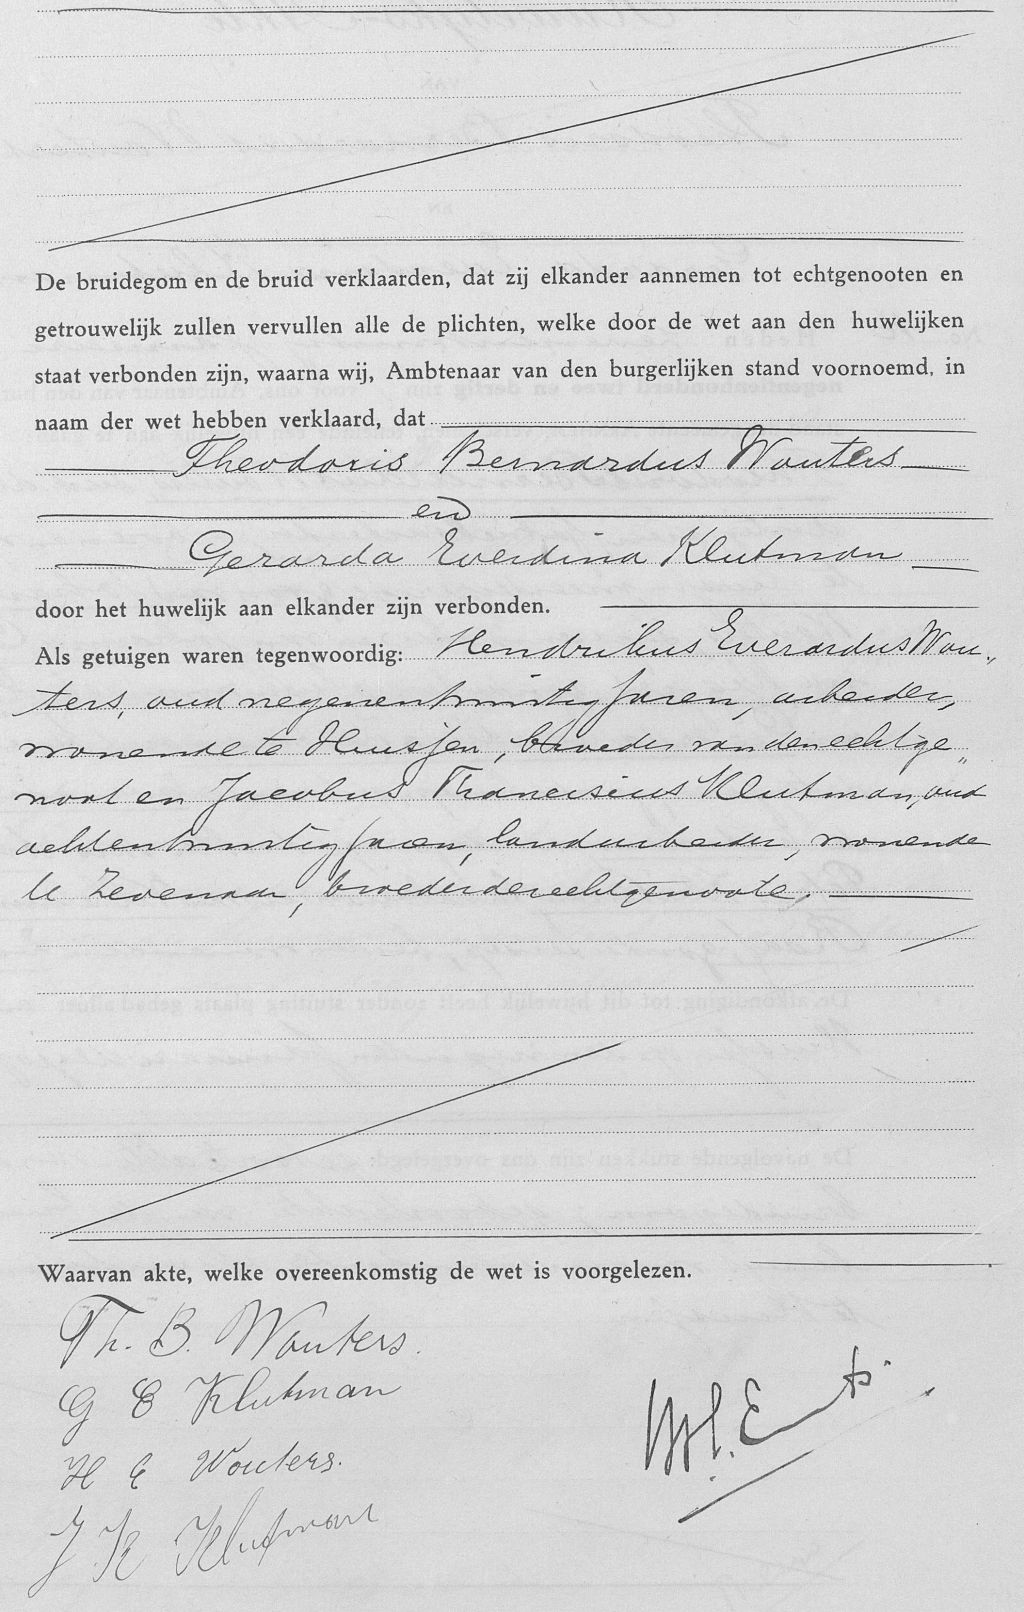 De bruidegom en de bruid verklaarden, dat zij elkander aannemen tot echtgenooten en
getrouwelijk zullen vervullen alle de plichten, welke door de wet aan den huwelijken
staat verbonden zijn, waarna wij, Ambtenaar van den burgerlijken stand voornoemd, in
naam der wet hebben verklaard, dat
Theodoris Bernardus Wouters
en
Gerarda Everdina Klutman
door het huwelijk aan elkander zijn verbonden.
Als getuigen waren tegenwoordig: Hendrikus Everardus Wou„
ters, oud negenentwintig jaren, arbeider,
wonende te Huissen, broeder van den echtge„
noot en Jacobus Franciscus Klutman, oud
achtentwintig jaren, landarbeider, wonende
te Zevenaar, broeder der echtgenoote.
Waarvan akte, welke overeenkomstig de wet is voorgelezen.
Th. B. Wouters.
G E Klutman
H E Wouters.
J. Klutman